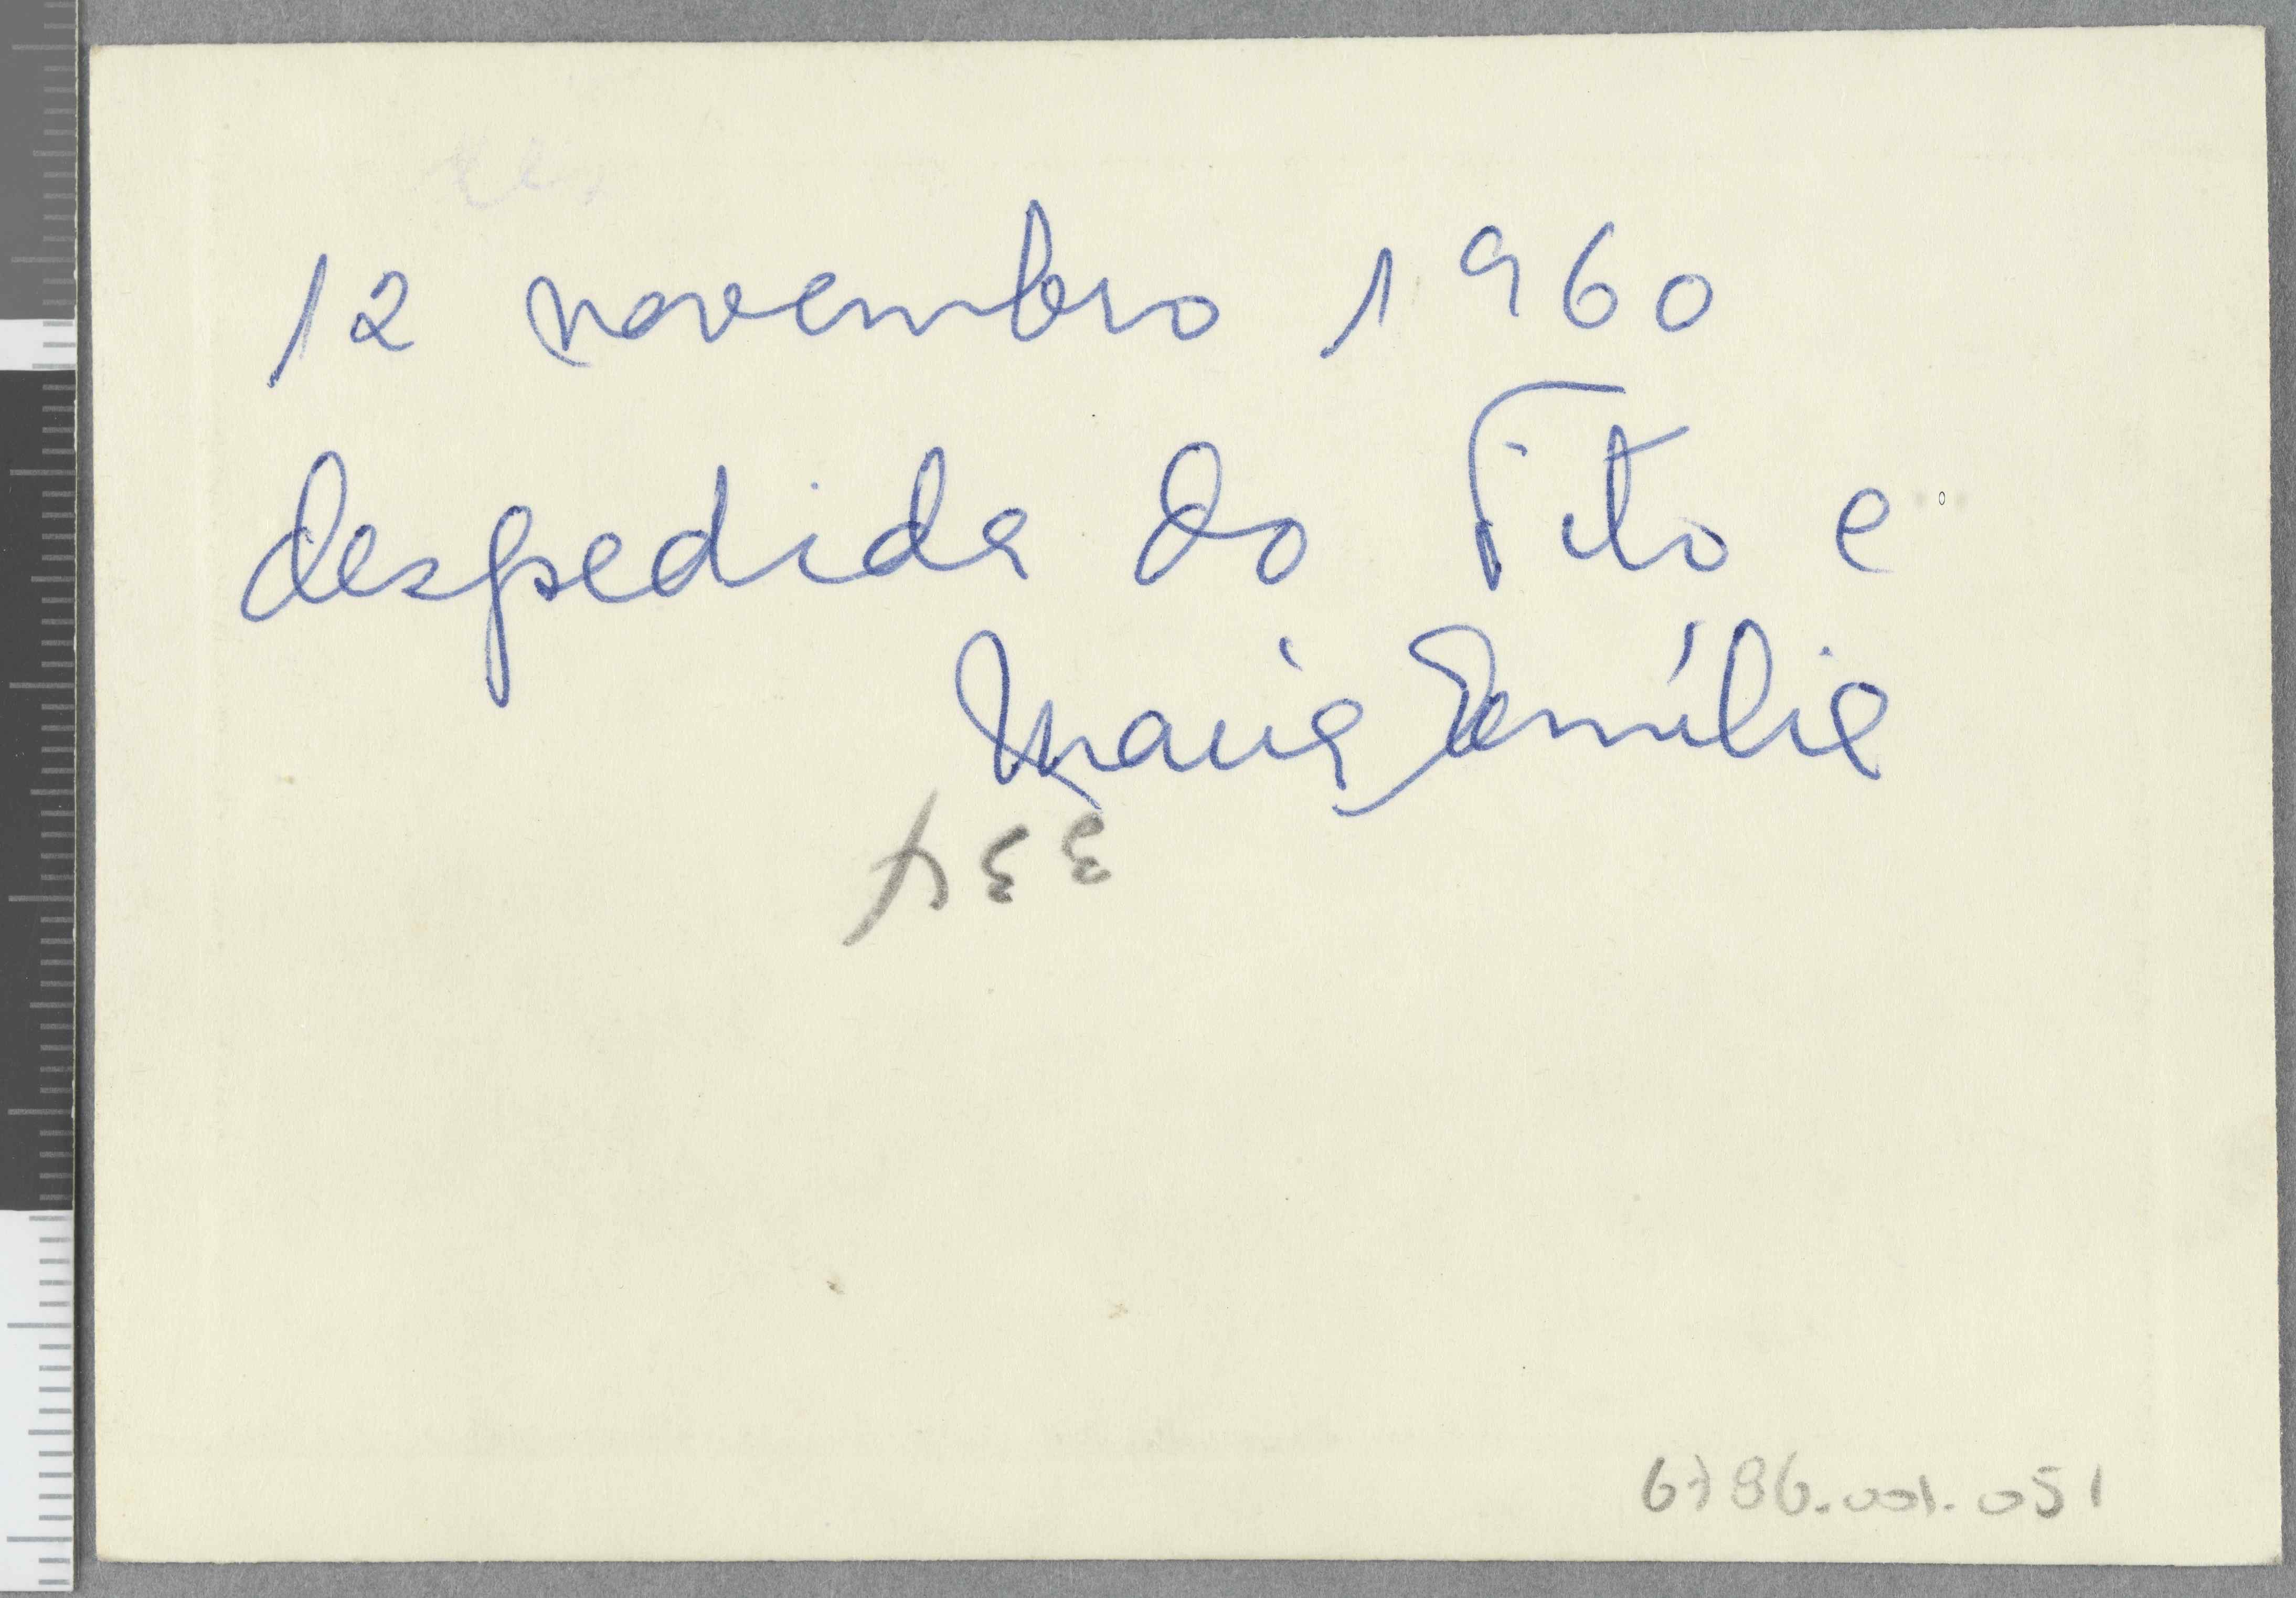 12 novembro 1960
despedida do Tito e
Maria Emília
334
6786.001.051